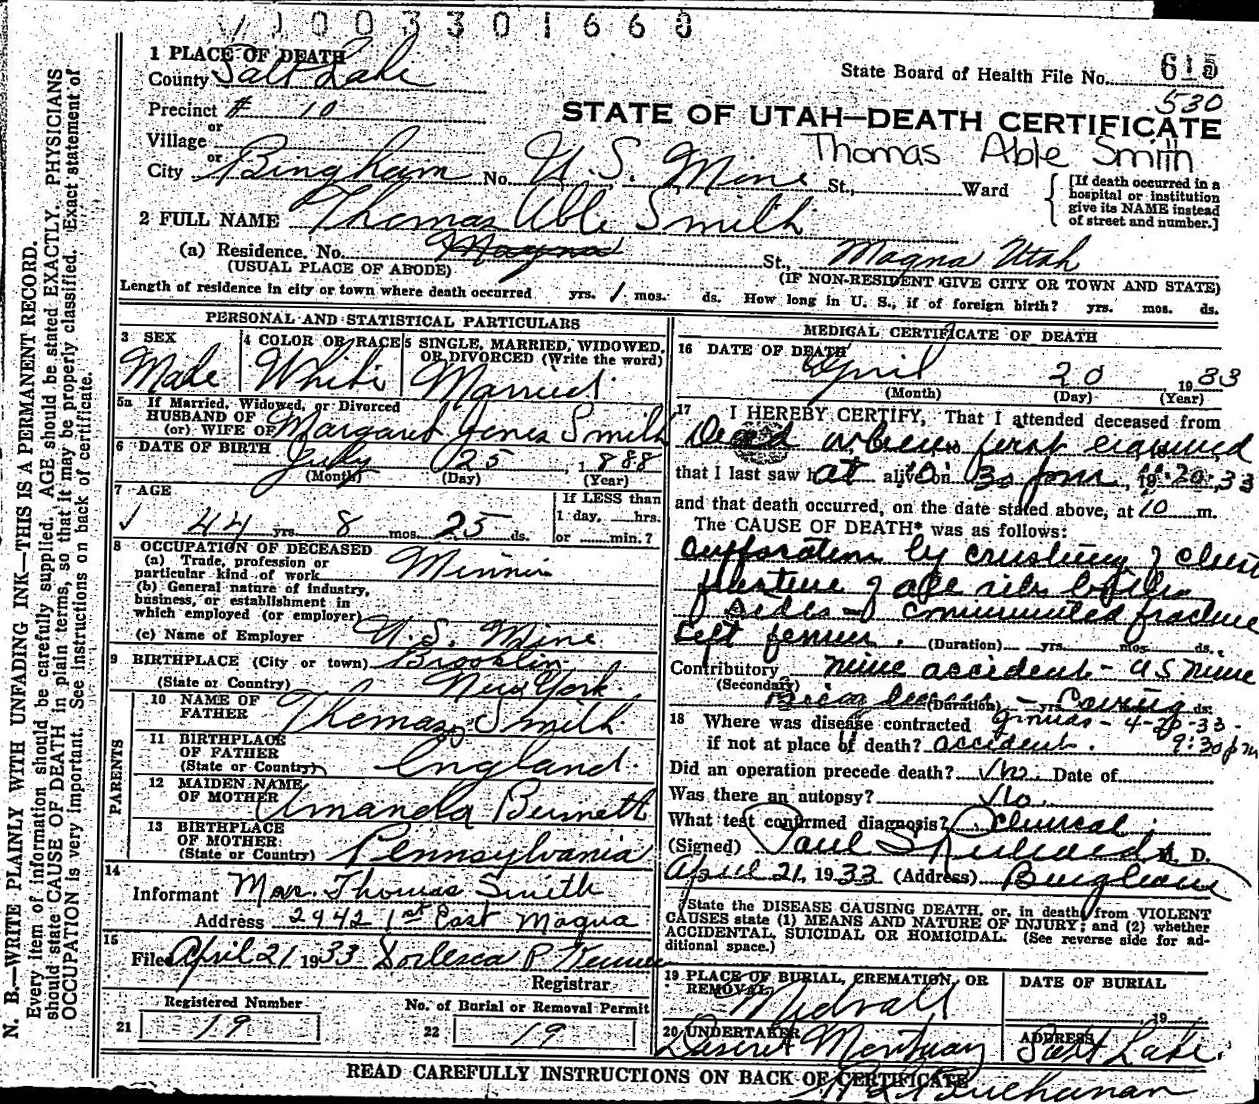 1003301668
1 PLACE OF DEATH
County Salt Lake
State Board of Health File No. 615
530
Precinct # 10
STATE OF UTAH—DEATH CERTIFICATE
or
Village
Thomas Able Smith
or
City Bingham No. U. S. Mine St., Ward
[If death occurred in a hospital or institution give its NAME instead of street and number.]
2 FULL NAME Thomas Able Smith
(a) Residence. No. Magna St., Magna Utah
(USUAL PLACE OF ABODE) (IF NON-RESIDENT GIVE CITY OR TOWN AND STATE)
Length of residence in city or town where death occurred yrs. 1 mos. ds. How long in U. S., if of foreign birth? yrs. mos. ds.
PERSONAL AND STATISTICAL PARTICULARS
3 SEX
Male
4 COLOR OR RACE
White
5 SINGLE, MARRIED, WIDOWED, OR DIVORCED (Write the word)
Married
5a If Married, Widowed, or Divorced
HUSBAND OF
(or) WIFE OF Margaret Jones Smith
6 DATE OF BIRTH July 25, 1888
(Month) (Day) (Year)
7 AGE
If LESS than
1 day, hrs.
or min.?
44 yrs. 8 mos. 25 ds.
8 OCCUPATION OF DECEASED
(a) Trade, profession or
particular kind of work Minner
(b) General nature of industry,
business, or establishment in
which employed (or employer)
(c) Name of Employer U. S. Mine
9 BIRTHPLACE (City or town) Brooklin
(State or Country) New York
PARENTS
10 NAME OF
FATHER Thomas Smith
11 BIRTHPLACE
OF FATHER
(State or Country) England
12 MAIDEN NAME
OF MOTHER Amanda Burnett
13 BIRTHPLACE
OF MOTHER
(State or Country) Pennsylvania
14
Informant Mrs. Thomas Smith
Address 2942 1st East Magna
15
Filed April 21 1933
Registrar
Registered Number No. of Burial or Removal Permit
21 19 22 19
MEDICAL CERTIFICATE OF DEATH
16 DATE OF DEATH
April 20, 1933
(Month) (Day) (Year)
17 I HEREBY CERTIFY, That I attended deceased from
Dead when first examined
that I last saw h at alive on 10:30 pm, 19 4.20.33
and that death occurred, on the date stated above, at 10 m.
The CAUSE OF DEATH* was as follows:
Suffocation by crushing of chest
fracture of all ribs both
sides - comminuted fracture
left femur. (Duration) yrs. mos. ds.
Contributory mine accident - U S Mine
(Secondary)
(Duration) yrs. Caving ds.
18 Where was disease contracted ground - 4-20-33-
if not at place of death? accident. 9:30 pm
Did an operation precede death? No. Date of
Was there an autopsy? No
What test confirmed diagnosis? Clinical
(Signed) Paul S Richards M. D.
April 21, 1933 (Address) Bingham
State the DISEASE CAUSING DEATH, or, in deaths from VIOLENT
CAUSES state (1) MEANS AND NATURE OF INJURY; and (2) whether
ACCIDENTAL, SUICIDAL OR HOMICIDAL. (See reverse side for ad-
ditional space.)
19 PLACE OF BURIAL, CREMATION, OR
REMOVAL Midvale
DATE OF BURIAL
, 19
20 UNDERTAKER
Deseret Mortuary
ADDRESS
Salt Lake
READ CAREFULLY INSTRUCTIONS ON BACK OF CERTIFICATE
Buchanan
N. B.—WRITE PLAINLY WITH UNFADING INK—THIS IS A PERMANENT RECORD.
Every item of information should be carefully supplied. AGE should be stated EXACTLY. PHYSICIANS
should state CAUSE OF DEATH in plain terms, so that it may be properly classified. Exact statement of
OCCUPATION is very important. See instructions on back of certificate.